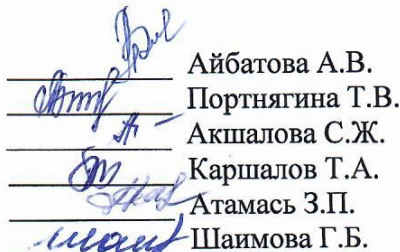 Айбатова А.В.
Портнягина Т.В.
Акшалова С.Ж.
Каршалов Т.А.
Атамась З.П.
Шаимова Г.Б.